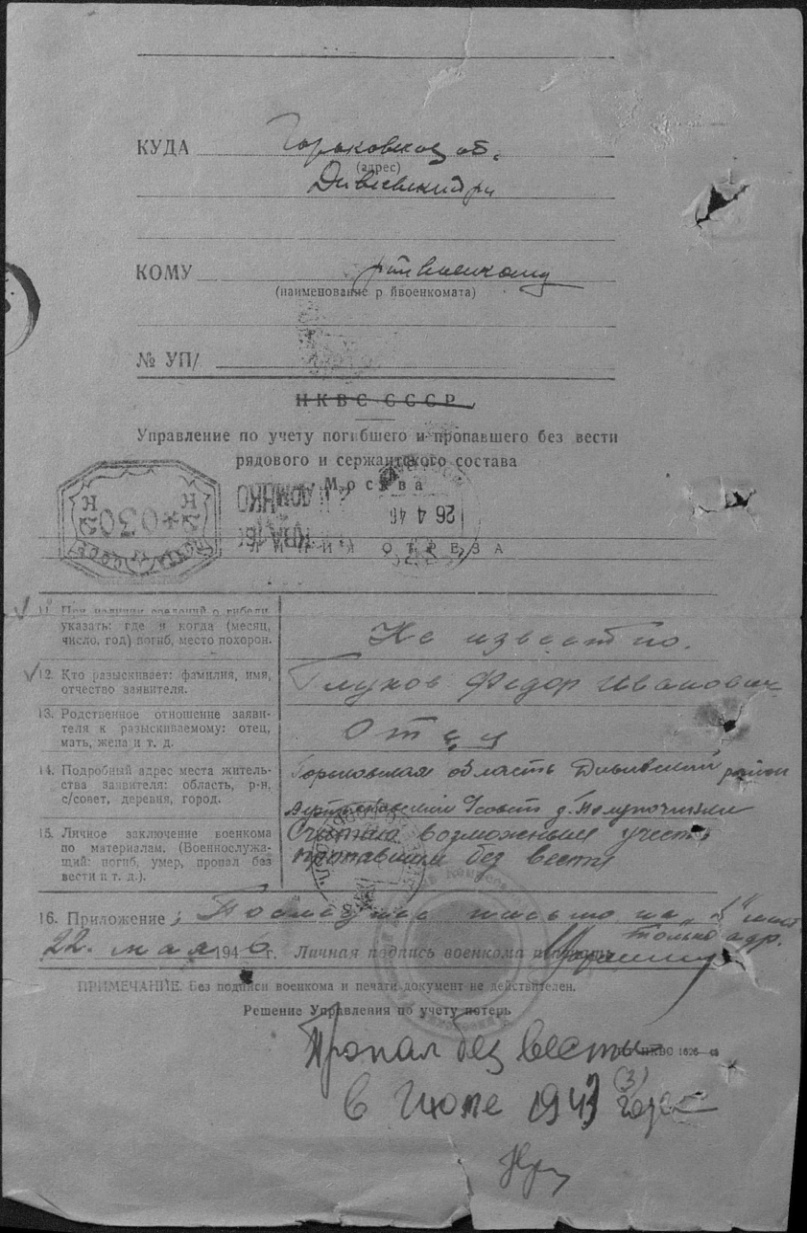 КУДА Горьковская об.
(адрес)
Дивеевский р-н
КОМУ райвоенкому
(наименование р йвоенкомата)
№ УП/
НКВС СССР
Управление по учету погибшего и пропавшего без вести
рядового и сержантского состава
Москва
26 4 46
ПОЧТА СССР
К 030 К
ЛИНИЯ ОТРЕЗА
11. При наличии сведений о гибели
указать: где и когда (месяц,
число, год) погиб, место похорон.
Не известно.
12. Кто разыскивает: фамилия, имя,
отчество заявителя.
Глухов Федор Иванович
13. Родственное отношение заяви-
теля к разыскиваемому: отец,
мать, жена и т. д.
Отец
14. Подробный адрес места житель-
ства заявителя: область, р-н,
с/совет, деревня, город.
Горьковская область Дивеевский район
с/совет д. Полупочинки
15. Личное заключение военкома
по материалам. (Военнослужа-
щий: погиб, умер, пропал без
вести и т. д.).
Считаю возможным учесть
пропавшим без вести
16. Приложение; Последнее письмо на "1" лист
только адр.
22. мая 1946 г. Личная подпись военкома и печать
ПРИМЕЧАНИЕ. Без подписи военкома и печати документ не действителен.
Решение Управления по учету потерь
НКВС
Пропал без вести
в Июле 1943 (3) года